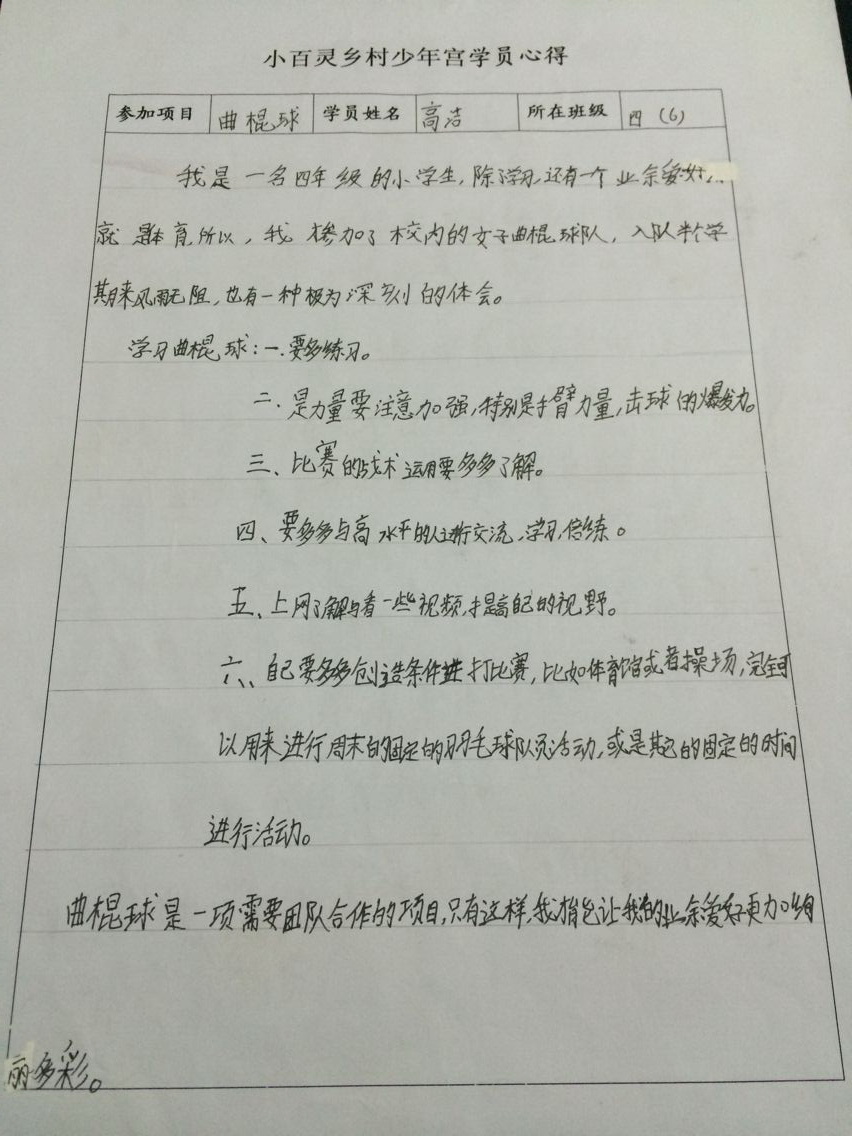 小百灵乡村少年宫学员心得
参加项目 曲棍球 学员姓名 高洁 所在班级 四（6）
我是一名四年级的小学生，除了学习，还有一个业余爱好
就是体育，所以，我参加了校内的女子曲棍球队，入队半个学
期来风雨无阻，也有一种极为深刻的体会。
学习曲棍球：一.要多练习。
二.是力量要注意加强，特别是手臂力量，击球的爆发力。
三、比赛的战术运用要多多了解。
四、要多多与高水平的人进行交流，学习，倍练。
五、上网了解与看一些视频，提高自己的视野。
六、自己要多多创造条件进打比赛，比如体育馆或者操场，完全可
以用来进行周末的固定的羽毛球队员活动，或是其它的固定的时间
进行活动。
曲棍球是一项需要团队合作的项目，只有这样，我指它让我的业余爱好更加绚
丽多彩。